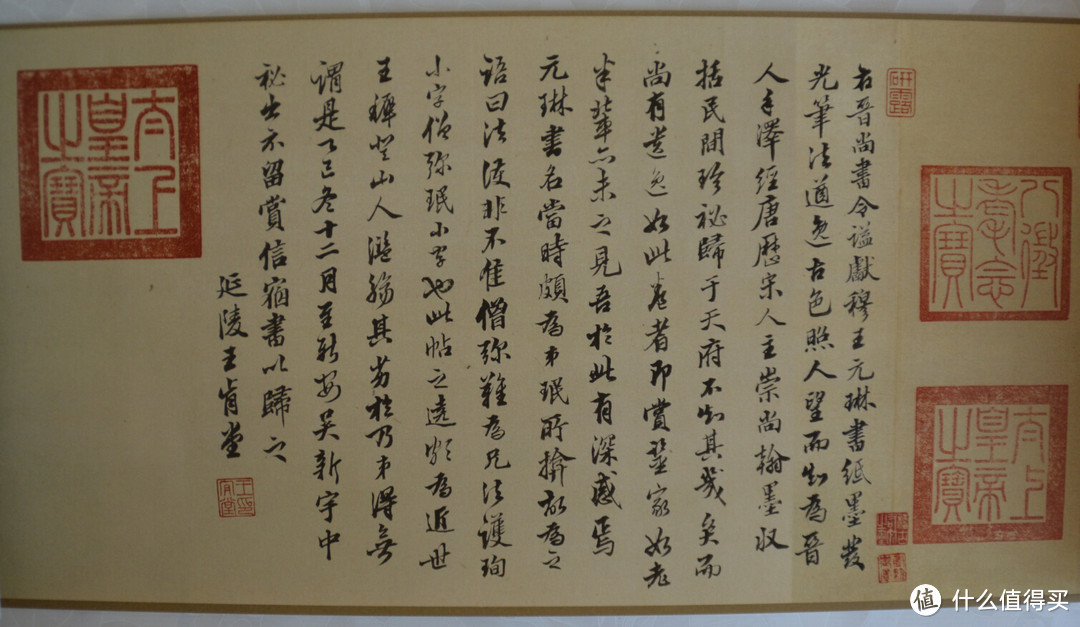 研露
八徵耄念之寶
太上皇帝之寶
右晉尚書令謚獻穆王元琳書紙墨發
光筆法遒逸古色照人望而知為晉
人手澤經唐歷宋人主崇尚翰墨收
括民間珍祕歸于天府不知其幾矣而
尚有遺逸如此卷者即賞鑒家如老
米輩亦未之見吾於此有深感焉
元琳書名當時頗為弟珉所揜故為之
語曰法護非不佳僧彌難為兄法護珣
小字僧彌珉小字也此帖之為近世
王穉登山人濫觴其劣於乃弟得無
謂是丁巳冬十二月至新安吳新宇中
祕出示留賞信宿書以歸之
延陵王肯堂
太上皇帝之寶
值 什么值得买